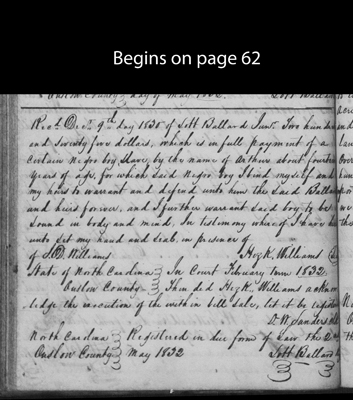 Begins on page 62
Onslow County day of May 1832 Jott Ballard
Recd. Dec. 9th day 1830 of Jott Ballard Junr. Two hundred
and Seventy five dollars, which is in full payment of a
Certain Negro boy Slave, by the name of Arthur about fourteen
years of age, for which said Negro boy I bind myself and
my heirs to warrant and defend unto him the said Ballard
and heirs forever, and I further warrant said boy to be
Sound in body and mind, In testimony whereof I have
unto set my hand and seal, in presence of
of D. Williams Hezk. Williams
State of North Carolina In Court February term 1832
Onslow County Then did Hezk. Williams acknow
ledge the execution of the within bill sale, let it be registered
D. W. Sanders
North Carolina Registered in due form of law the 2nd
Onslow County May 1832 Jott Ballard